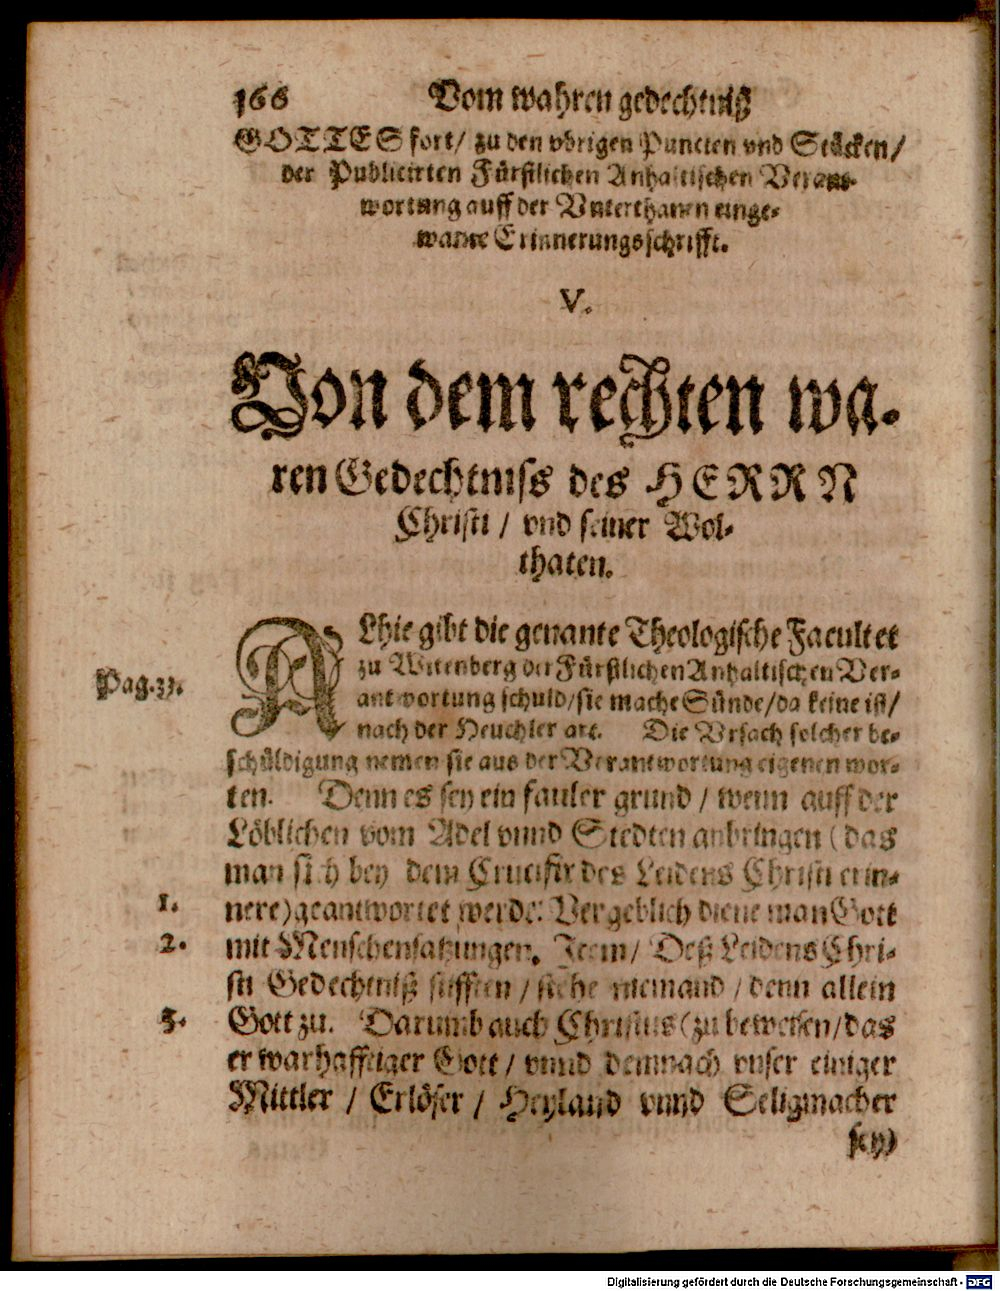 166 Vom wahren gedechtniß
GOTTES fort/ zu den vbrigen Puncten vnd Stücken/
der Publicirten Fürstlichen Anhaltischen Verant-
wortung auff der Vnterthanen einge-
wante Erinnerungsschrifft.
V.
Von dem rechten wa-
ren Gedechtniss des HERRN
Christi / vnd seiner Wol-
thaten.
ALhie gibt die genante Theologische Facultet
Pag. 33. zu Witenberg der Fürstlichen Anhaltischen Ver-
antwortung schuld/sie mache Sünde/da keine ist/
nach der Heuchler art. Die Vrsach solcher be-
schüldigung nemen sie aus der Verantwortung eigenen wor-
ten. Denn es sey ein fauler grund / wenn auff der
Löblichen vom Adel vnnd Stedten anbringen (das
man sich bey dem Crucifix des Leidens Christi erin-
1. nere) geantwortet werde: Vergeblich diene man Gott
2. mit Menschensatzungen. Item/ Deß Leidens Chri-
sti Gedechtniß stifften / stehe niemand / denn allein
3. Gott zu. Darumb auch Christus (zu beweisen/das
er warhafftiger Gott / vnnd demnach vnser einiger
Mittler / Erlöser / Heyland vnnd Seligmacher
sey)
Digitalisierung gefördert durch die Deutsche Forschungsgemeinschaft - DFG